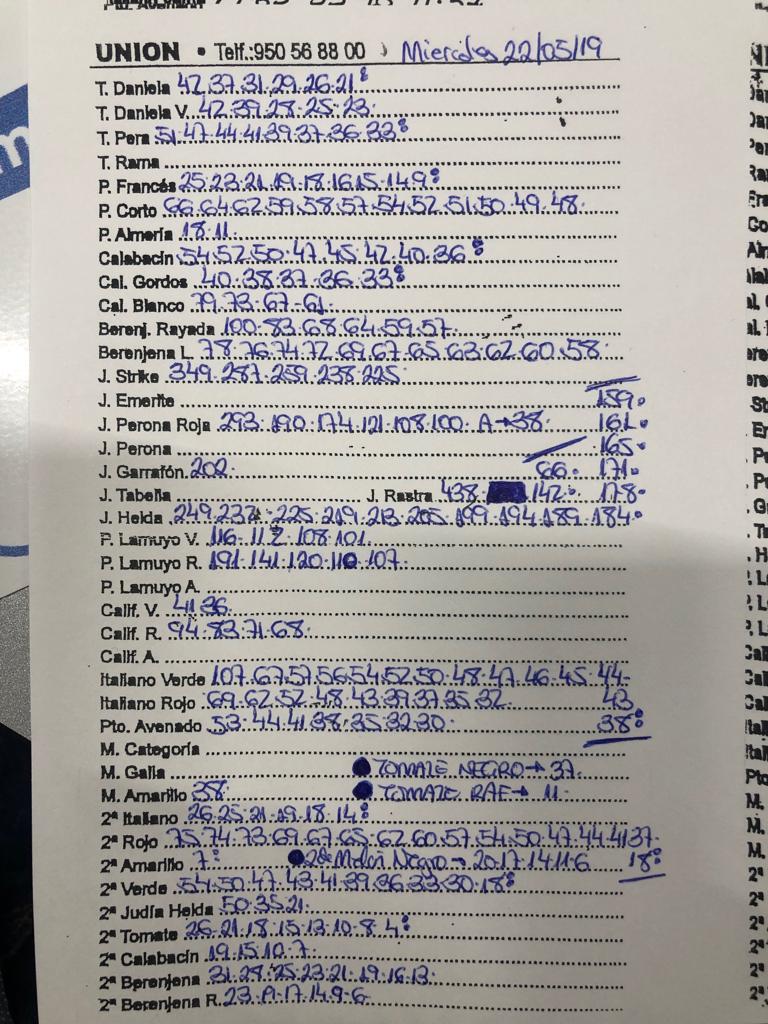 UNION • Telf.:950 56 88 00 Miercoles 22/05/19
T. Daniela 42.37.31.29.26.21:
T. Daniela V. 42.39.28.25.23.
T. Pera 51.47.44.41.39.37.36.33:
T. Rama
P. Francés 25.23.21.19.18.16.15.14.9:
P. Corto 66.64.62.59.58.57.54.52.51.50.49.48.
P. Almería 18.11.
Calabacín 54.52.50.47.45.42.40.36:
Cal. Gordos 40.38.37.36.33:
Cal. Blanco 79.73.67.61.
Berenj. Rayada 100.83.68.64.59.57.
Berenjena L. 78.76.74.72.69.67.65.63.62.60.58.
J. Strike 349.287.259.238.225.
J. Emerite 159.
J. Perona Roja 293.190.174.121.108.100. A→38. 161.
J. Perona 165.
J. Garrafón 202. 66. 171.
J. Tabella J. Rastra 438. 142. 178.
J. Helda 249.232.225.219.213.205.199.194.189.184.
P. Lamuyo V. 116.112.108.101.
P. Lamuyo R. 191.141.120.110.107.
P. Lamuyo A.
Calif. V. 41.36.
Calif. R. 94.83.71.68.
Calif. A.
Italiano Verde 107.67.57.56.54.52.50.48.47.46.45.44.
Italiano Rojo 69.62.52.48.43.39.37.35.32. 43
Pto. Avenado 53.44.41.38.35.32.30. 38:
M. Categoría
M. Galia TOMATE NEGRO→37.
M. Amarillo 38. TOMATE RAF→11.
2ª Italiano 26.25.21.19.18.14:
2ª Rojo 75.74.73.69.67.65.62.60.57.54.50.47.44.41.37.
2ª Amarillo 7: 2ª Melón Negro→20.17.14.11.6 18:
2ª Verde 54.50.47.43.41.39.36.33.30.18:
2ª Judía Helda 50.35.21.
2ª Tomate 26.21.18.15.13.10.8.4:
2ª Calabacín 19.15.10.7.
2ª Berenjena 31.28.25.23.21.19.16.13.
2ª Berenjena R. 23.19.17.14.9.6.